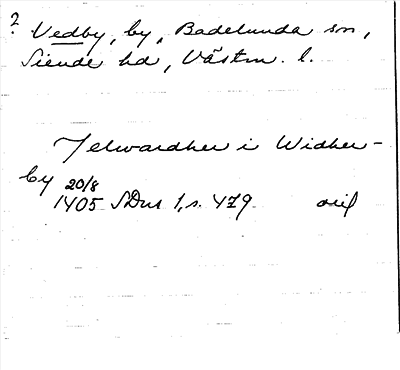 ? Vedby, by, Badelunda sn,
Siende hd, Västm. l.
Jelwardher i Widher-
by 20/8
1405 SDns 1, s. 479 orig